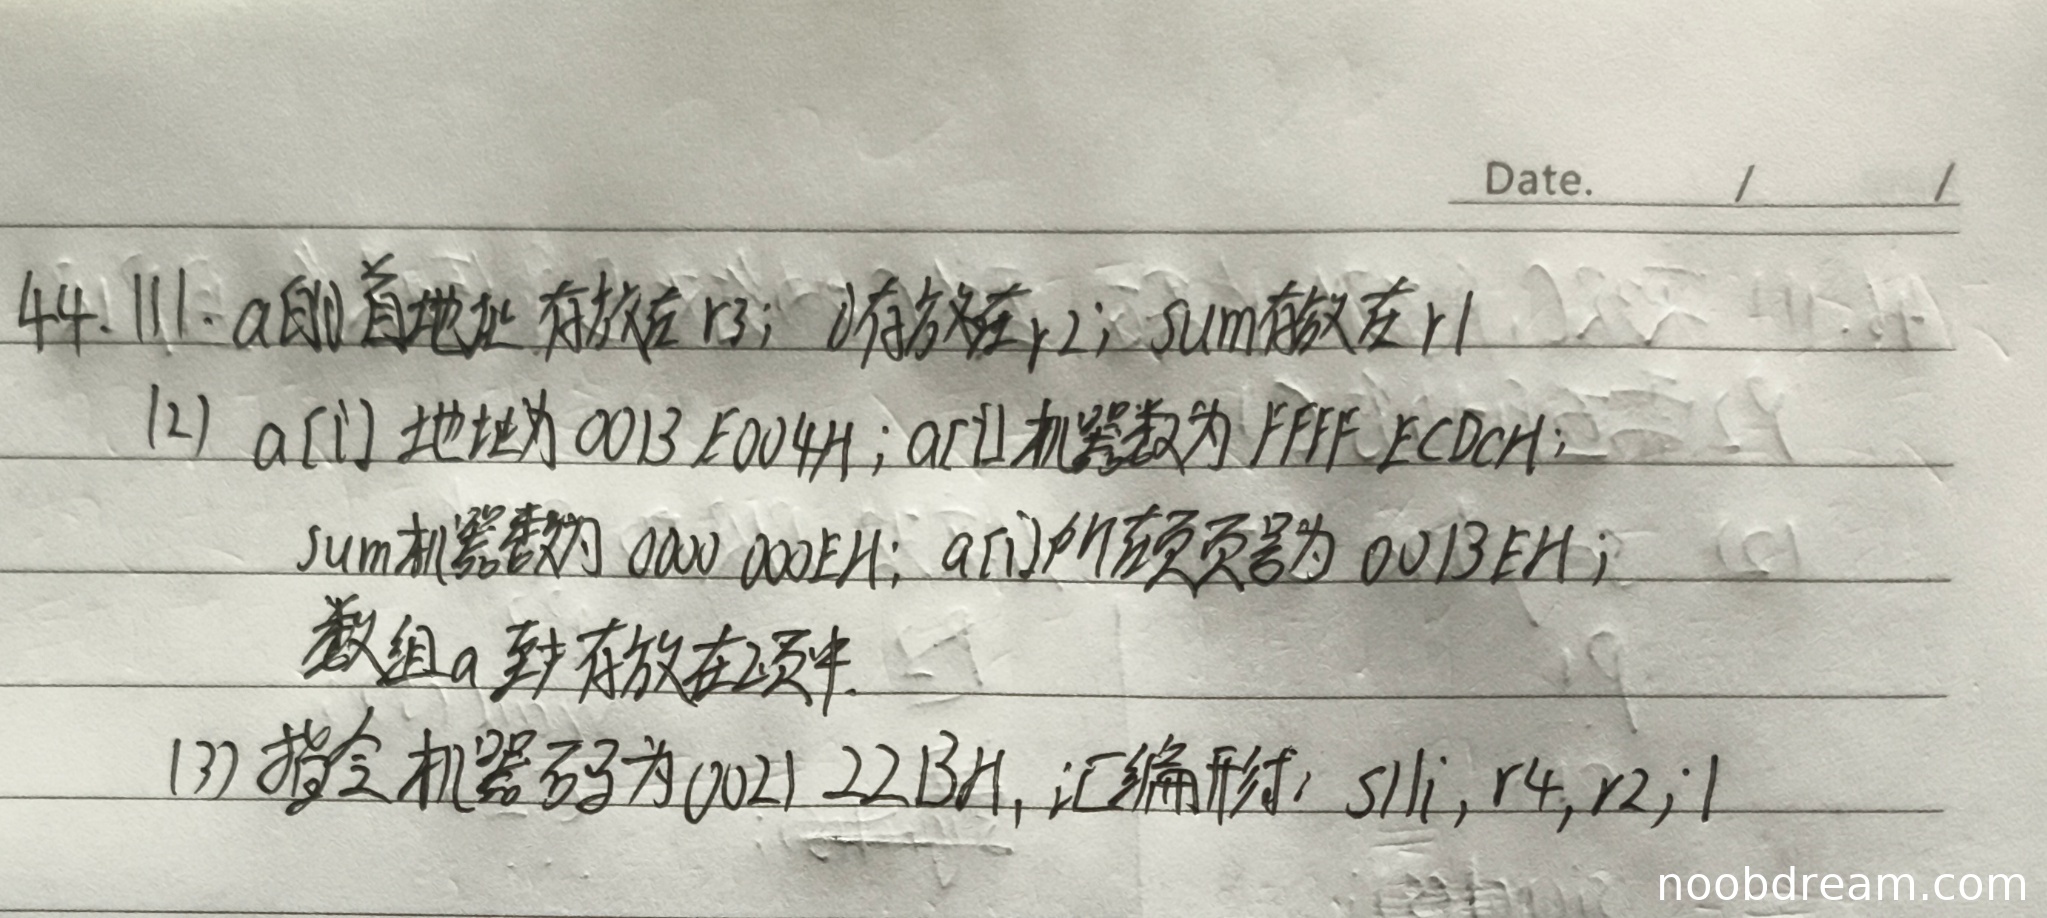 Date. / /
44.(1). a的首地址存放在r3; i存放在r2; sum存放在r1
(2) a[i]地址为0013 E004H; a[i]机器数为FFFF ECDCH;
sum机器数为 0000 000EH; a[i]所在页页号为 0013EH;
数组a至少存放在2页中.
(3) 指令机器码为0021 2213H, 汇编形式: slli, r4, r2, 1
noobdream.com